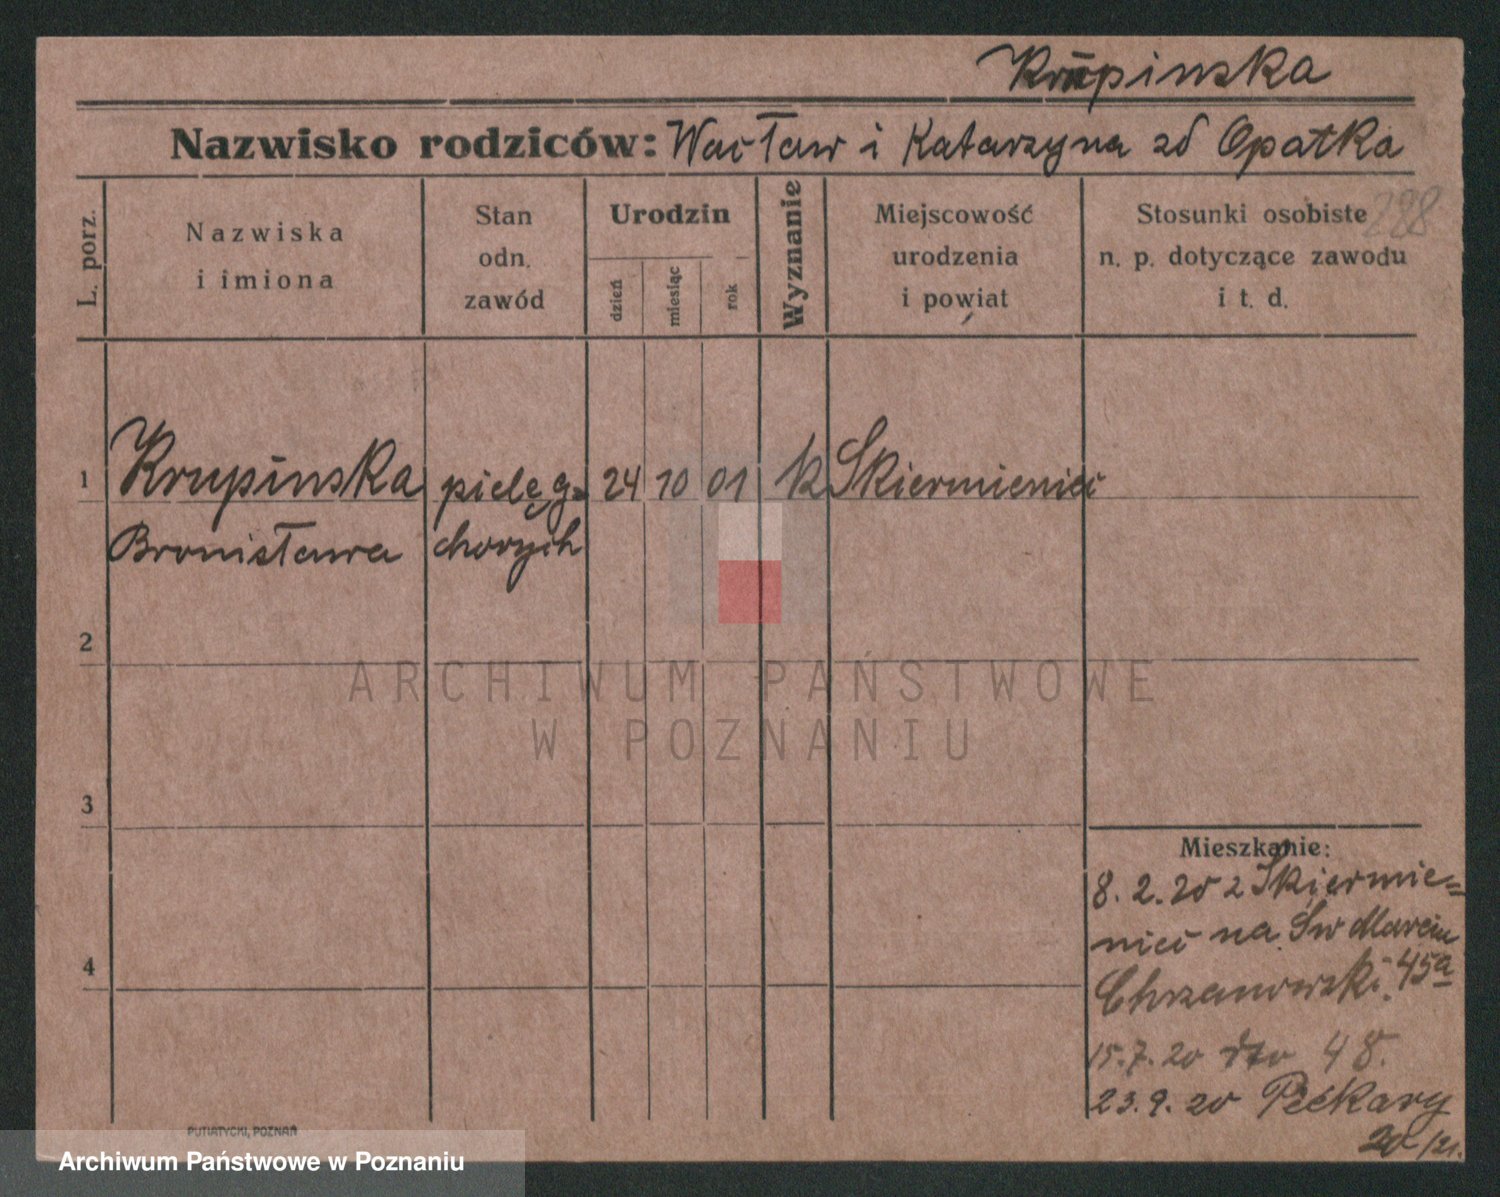 Krupinska
Nazwisko rodziców: Wacław i Katarzyna zd Opatka
288
L. porz.
Nazwiska
i imiona
Stan
odn.
zawód
Urodzin
dzień
miesiąc
rok
Wyznanie
Miejscowość
urodzenia
i powiat
Stosunki osobiste
n. p. dotyczące zawodu
i t. d.
1 Krupinska pielęg= 24 10 01 k Skierniewici
Bronisława chorych
2
ARCHIWUM PAŃSTWOWE
W POZNANIU
3
4
Mieszkanie:
8. 2. 20 z Skiernie=
nici na Św Marcin
Chrzanowski 45a
15.7. 20 dto 48.
23. 9. 20 Piekary
20/21.
PUTIATYCKI, POZNAŃ
Archiwum Państwowe w Poznaniu